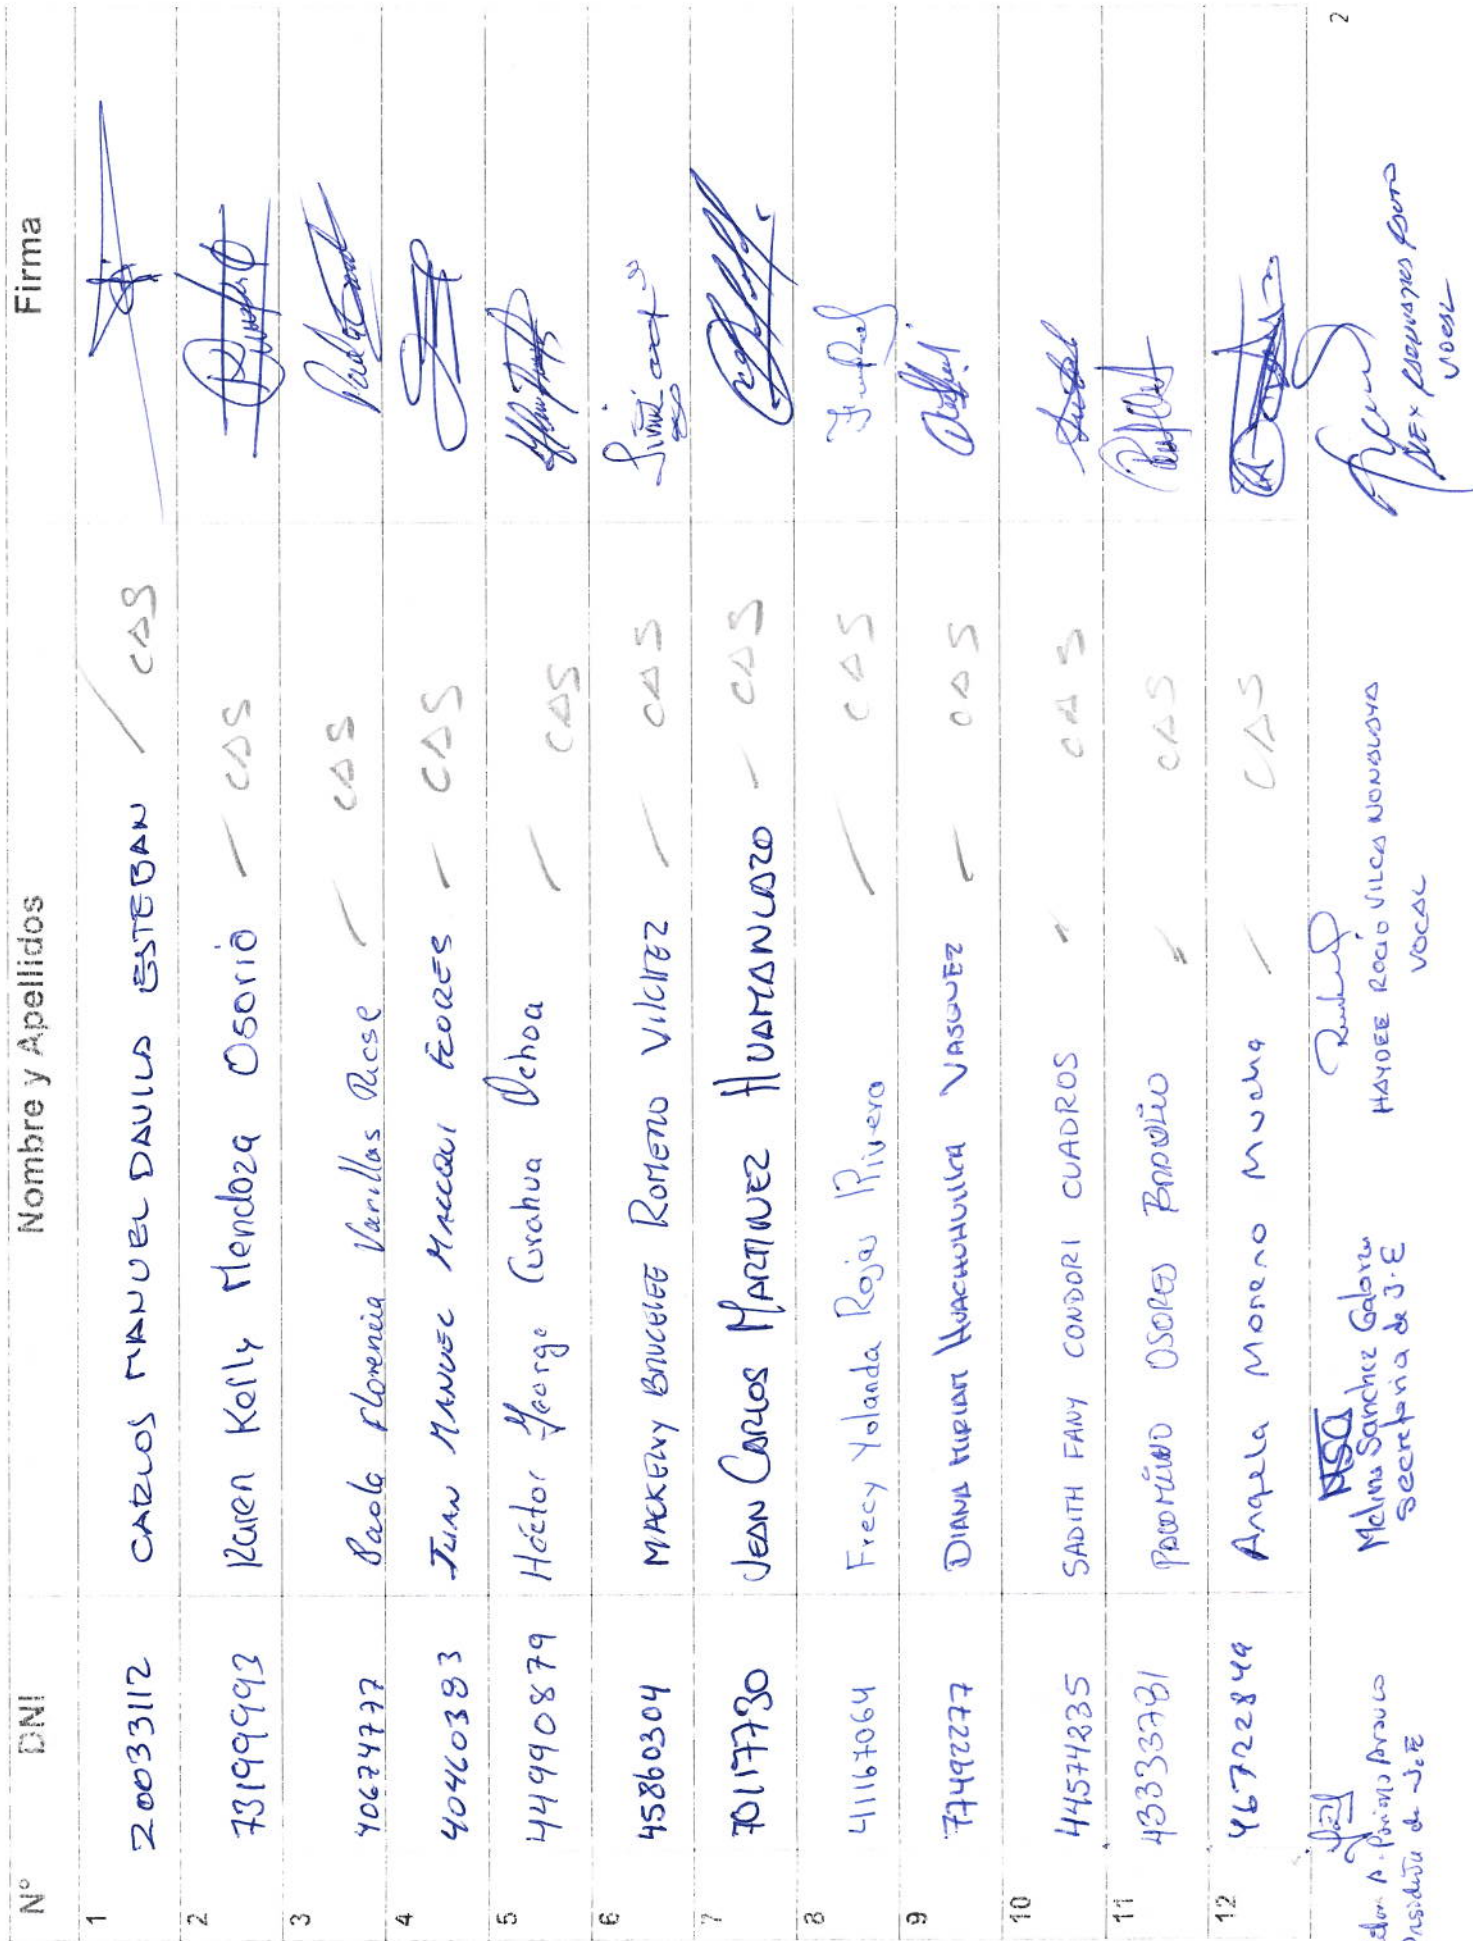 Nº DNI Nombre y Apellidos Firma
1 20033112 CARLOS MANUEL DAVILA ESTEBAN / CAS
2 73199993 Karen Kelly Mendoza Osorio - CAS
3 40674777 Paola Florencia Varillas Ricse - CAS
4 40460383 JUAN MANUEL MALLQUI FLORES - CAS
5 44990879 Héctor George Curahua Ochoa - CAS
6 45860304 MACKELVY BRUCELEE ROMERO VILCHEZ - CAS
7 70117730 JEAN CARLOS MARTINEZ HUAMANLAZO - CAS
8 41167064 Frecy Yolanda Rojas Rivera - CAS
9 77492277 DIANA MIRIAM HUACHUHUILLCA VASQUEZ - CAS
10 44574235 SADITH FANY CONDORI CUADROS - CAS
11 43333781 PALOMINO OSORES - CAS
12 46722849 Angela Moreno Mucha - CAS
Presidenta de J.E
MSG
Melina Sanchez
Secretaria de J.E
HAYDEE ROCIO VILCAS
VOCAL
ALEX
VOCAL
2